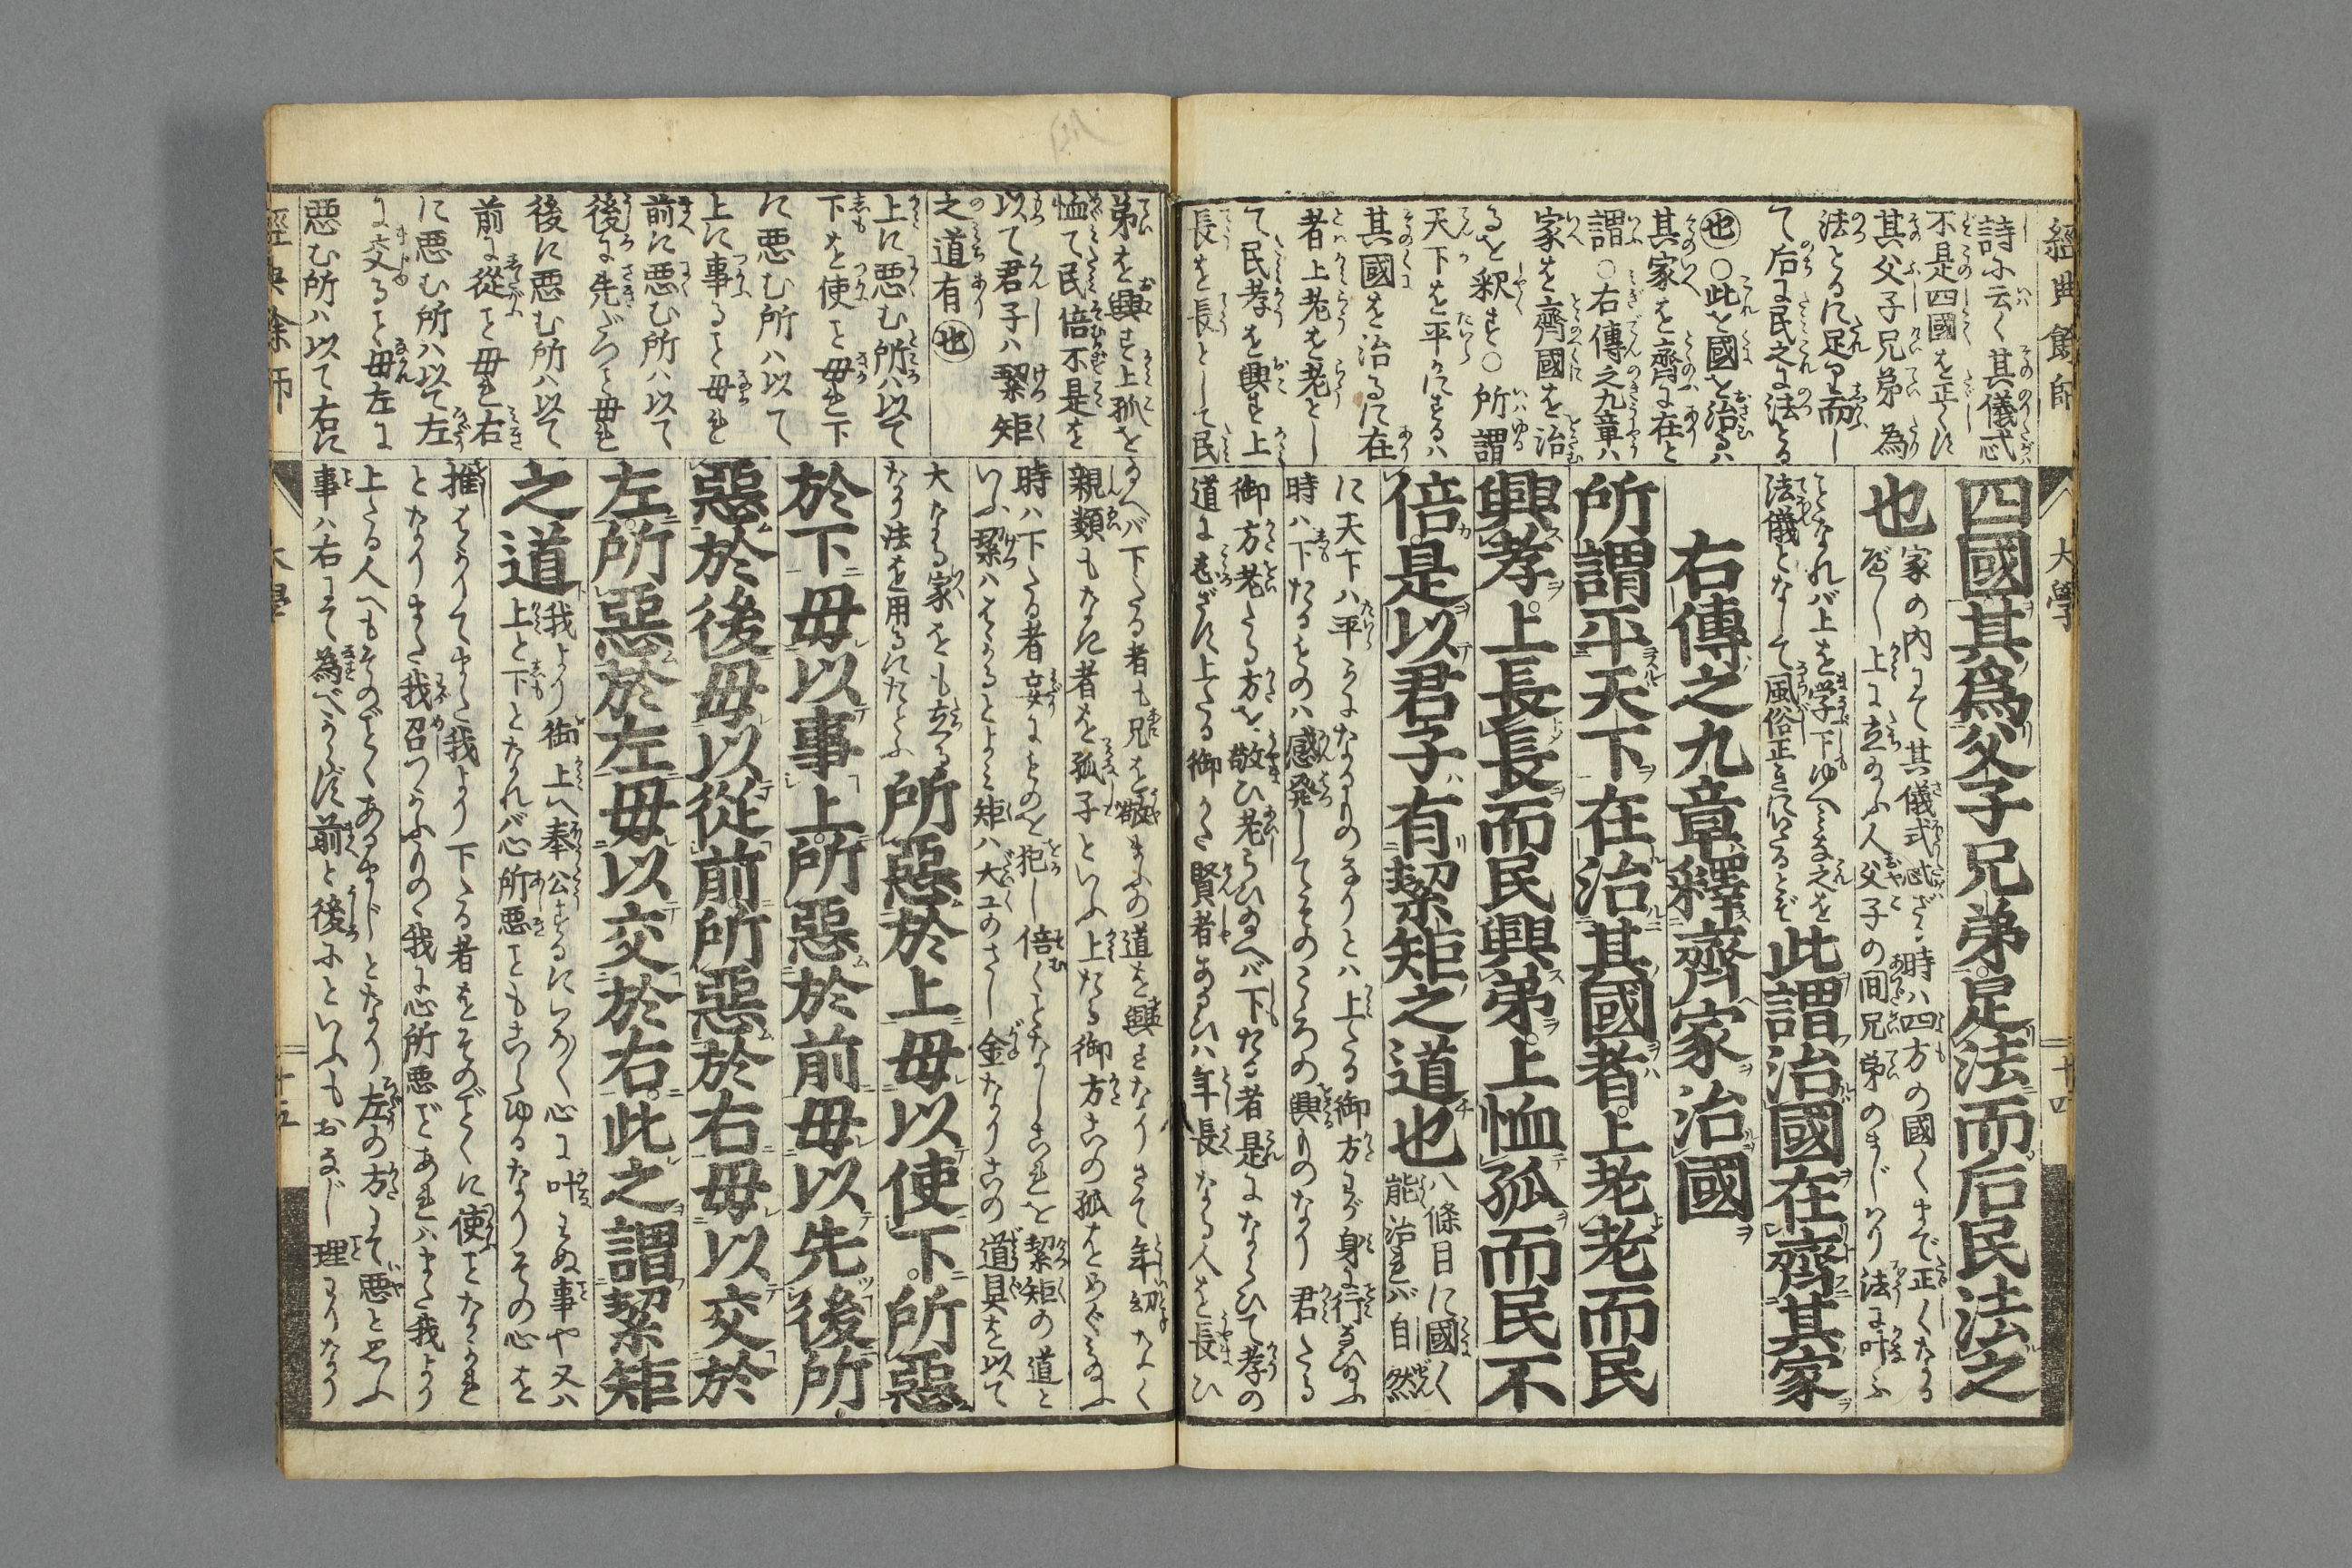 經典餘師
大學
十四
詩に云く其儀忒
不是四國を正くす
其父子兄弟為
法とるに足て而し
て后に民之に法とる
也○此を國を治るハ
其家を齊に在と
謂○右傳之九章ハ
家を齊國を治
るを釈す○所謂
天下を平かにするハ
其國を治るに在
者上老を老とし
て民孝を興す上
長を長として民
四國其爲父子兄弟足法而后民法之
也
家の内にて其儀式忒ざる時ハ四方の國くまで正くなる
べし上に立給ふ人父子の間兄弟のまじハり法に叶ふ
ことなれバ上を学下ゆへみな之を
法儀となして風俗正きにいたるとぞ
此謂治國在齊其家
右傳之九章釋齊家治國
所謂平天下在治其國者上老老而民
興孝上長長而民興弟上恤孤而民不
倍是以君子有絜矩之道也
八條目に國く
能治まれバ自然
に天下ハ平かになるものなりとハ上たる御方まづ身に行ひ給ふ
時ハ下たるものハ感発してそのこころの興ものなり君たる
御方老たる方を敬ひ老らひ給へバ下たる者是にならひて孝の
道に志ざす上たる御かた賢者あるひハ年長なる人を長ひ
弟を興す上孤を
恤て民倍不是を
以て君子ハ絜矩
之道有也
上に悪む所ハ以て
下を使こと毋れ下
に悪む所ハ以て
上に事ること毋れ
前に悪む所ハ以て
後に先だつこと毋れ
後に悪む所ハ以て
前に從こと毋れ右
に悪む所ハ以て左
に交ること毋左に
悪む所ハ以て右に
給へバ下たる者も兄を敬まふの道を興すなりさて年幼なく
親類もなき者を孤子といふ上たる御方この孤をめぐミ給ふ
時ハ下たる者妄にものを犯し倍くことなしこれを絜矩の道と
いふ絜ハはかるとよミ矩ハ大工のさし金なりこの道具を以て
大なる家をも立る
なり法を用るにたとふ
所惡於上毋以使下所惡
於下毋以事上所惡於前毋以先後所
惡於後毋以從前所惡於右毋以交於
左所惡於左毋以交於右此之謂絜矩
之道
我より御上へ奉公するにいろ〳〵心に叶ハぬ事や又ハ
上と下となれバ心所悪こともあらゆるなりその心を
推はかりてまた我より下たる者をそのごとくに使ことなかれ
となりまた我召つかふもの我に心所悪ごとあれハまた我より
上たる人へもそのごとくあるまじとなり左の方にて悪と思ふ
事ハ右にて為べからず前と後ふといふもおなじ理にりなり
經典餘師
大學
十五